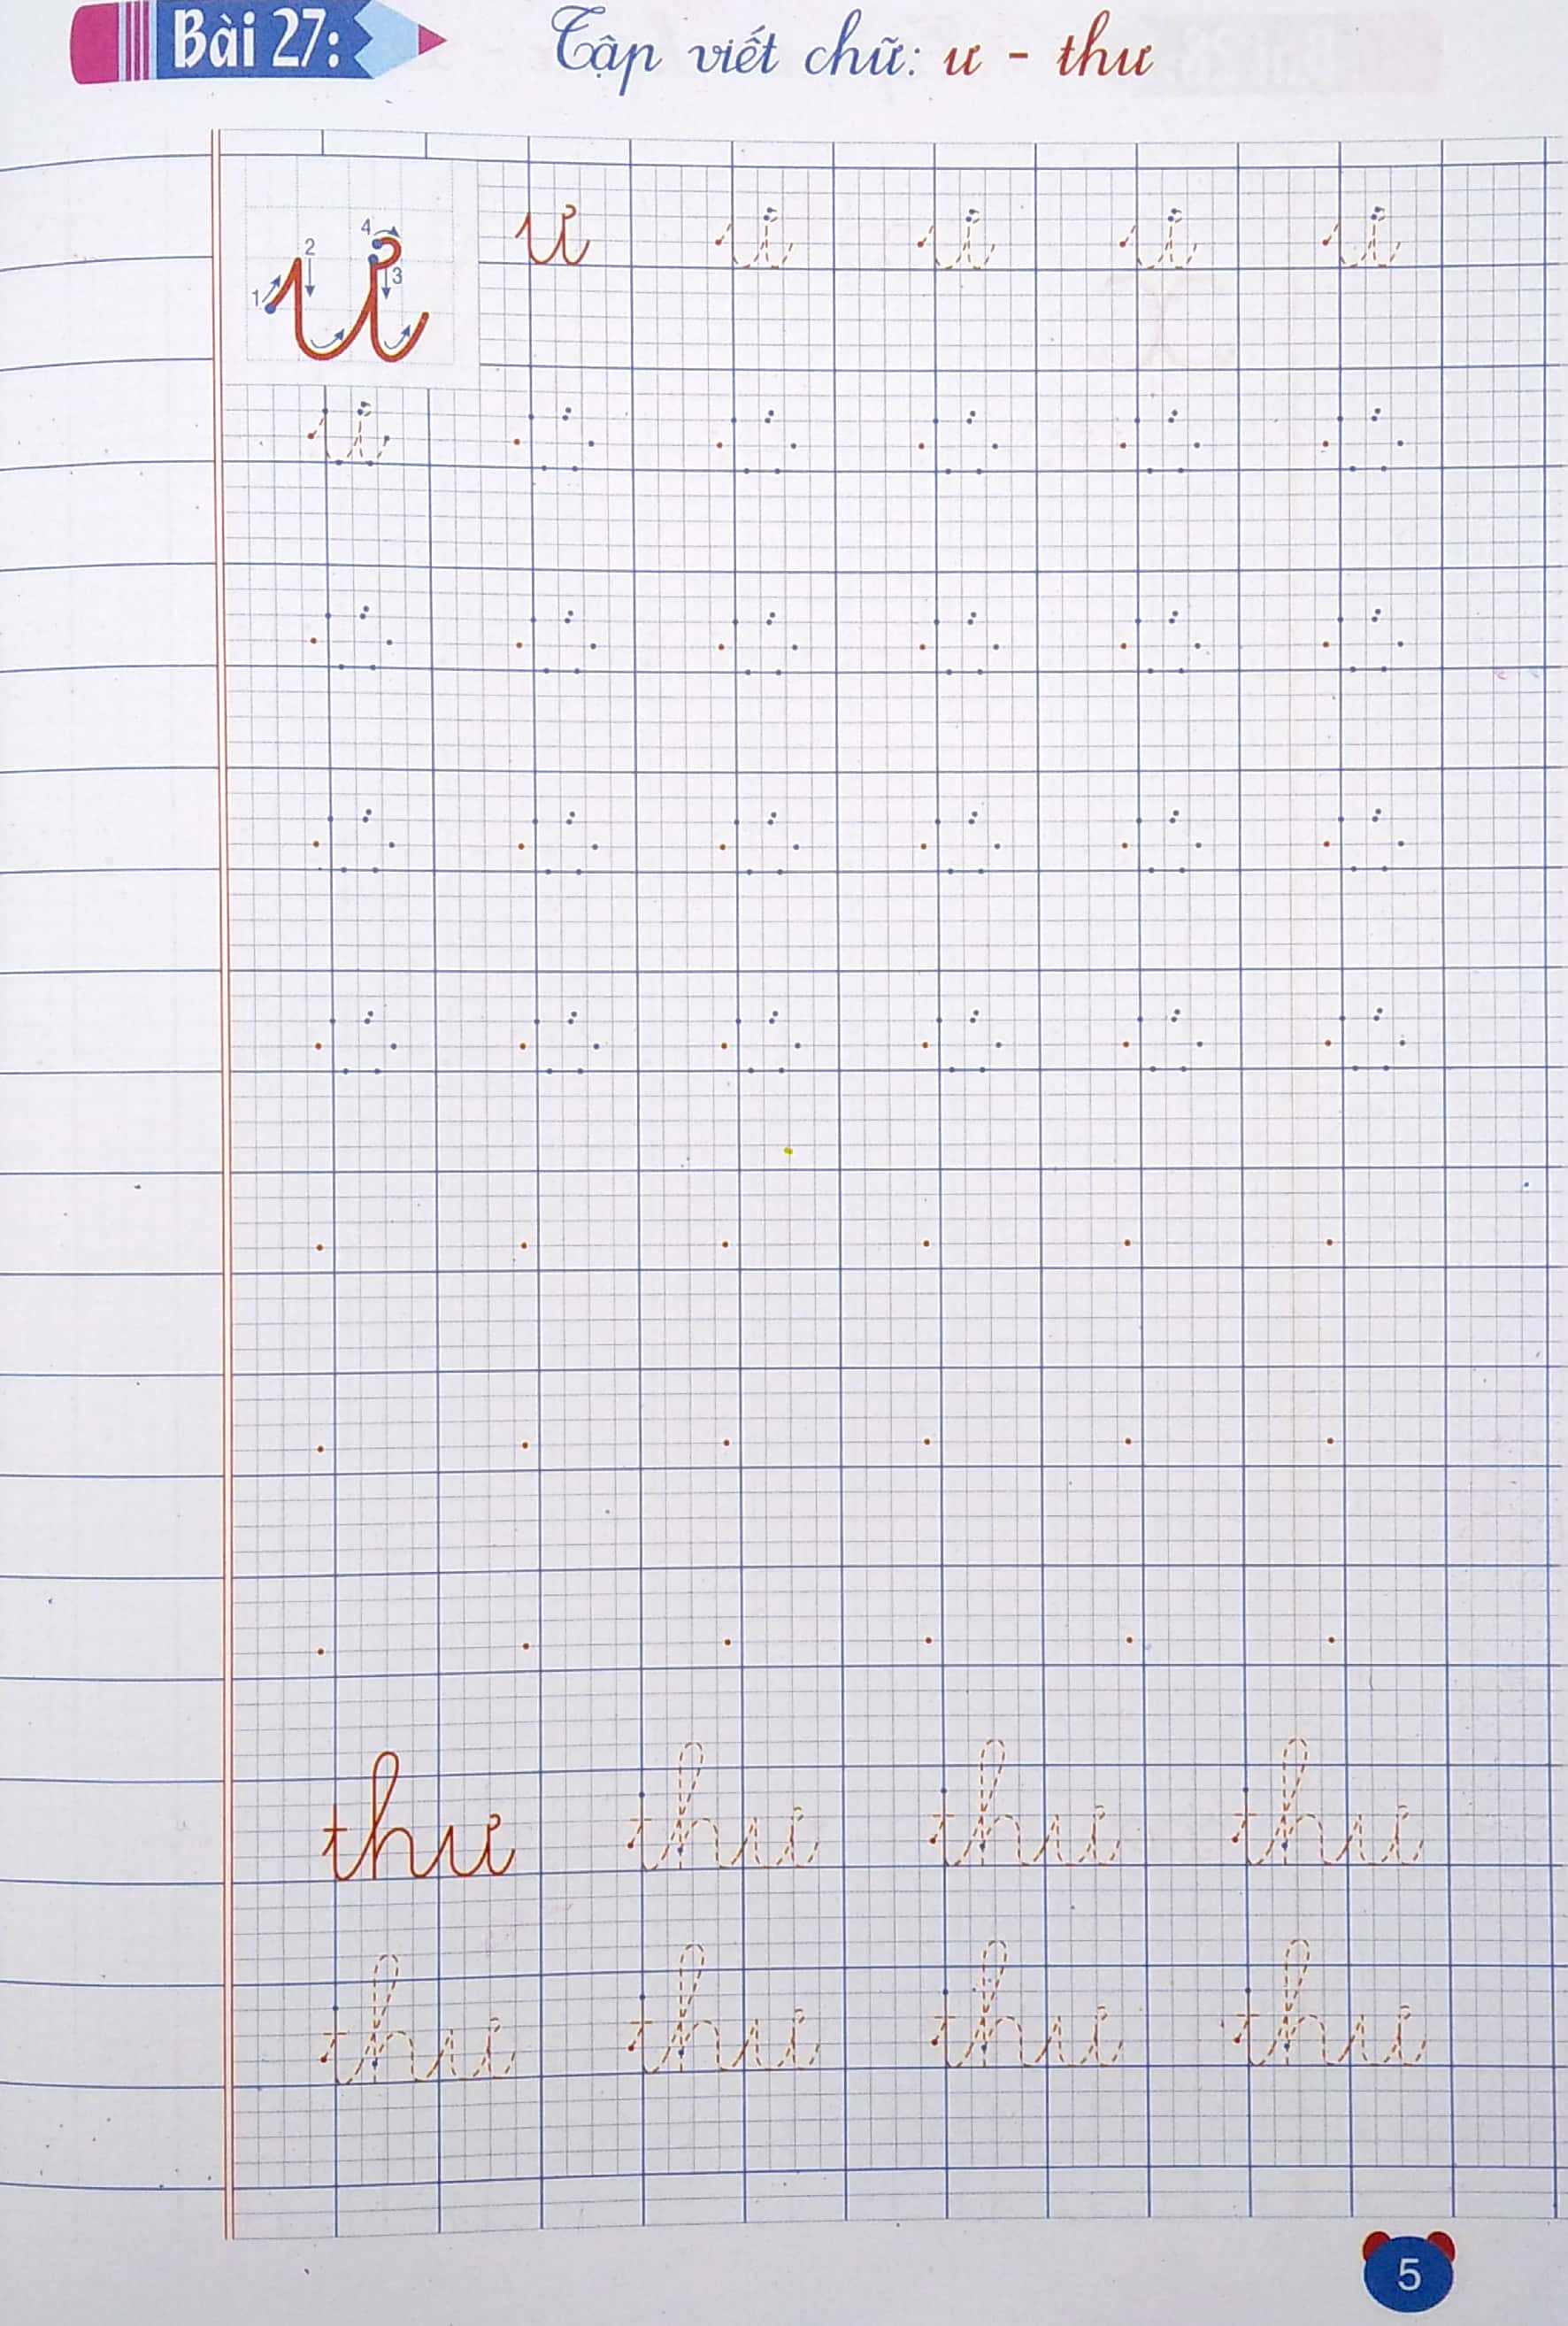 Bài 27: Tập viết chữ: ư - thư
1 2 3 4
ư ư ư ư ư ư
ư
thư thư thư thư
thư thư thư thư
5